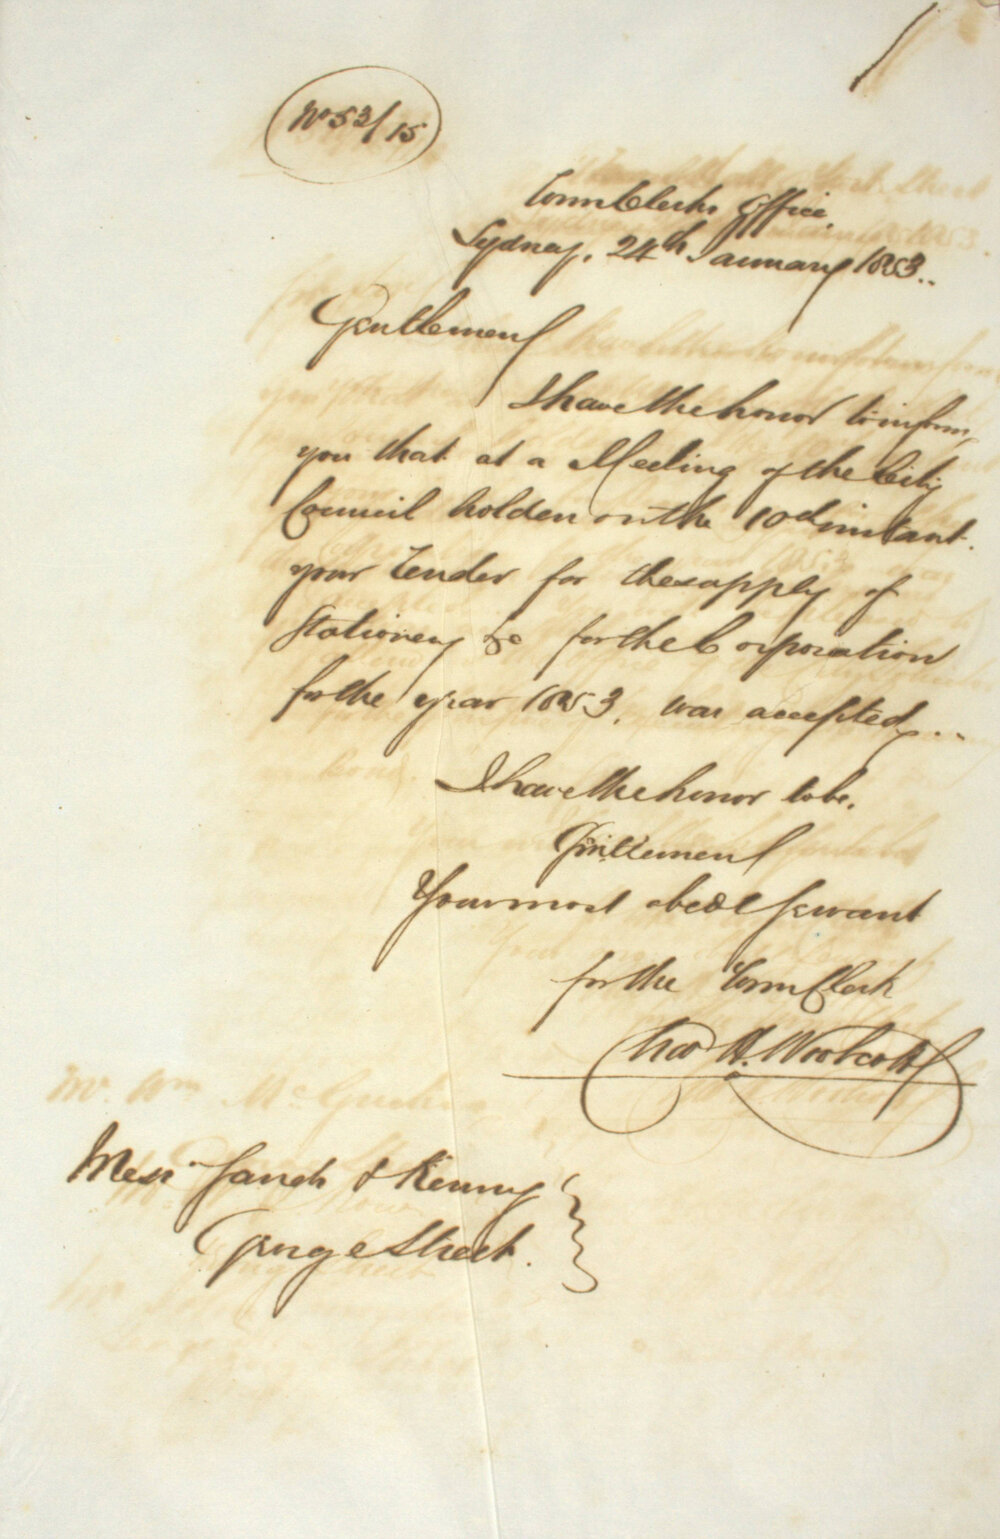 No 53/15
Town Clerks Office,
Sydney, 24th January 1853..
Gentlemen
I have the honor to inform
you that at a Meeting of the City
Council holden on the 10th instant.
your Tender for the supply of
Stationery &c for the Corporation
for the year 1853, was accepted..
I have the honor to be,
Gentlemen
Your most obedt servant
for the Town Clerk
Chas H. Woolcott
Messrs Sands & Kenny
George Street.